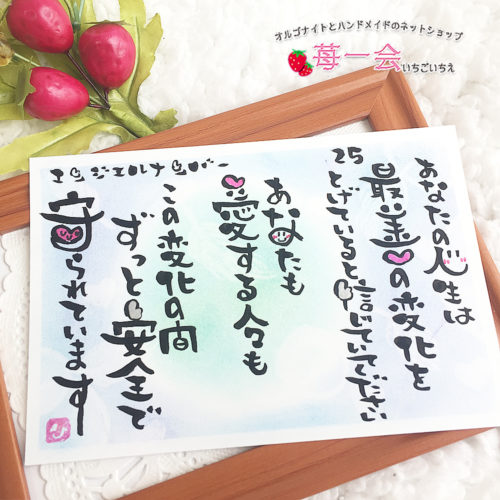 オルゴナイトとハンドメイドのネットショップ
苺一会
いちごいちえ
エンジェルナンバー
25
あなたの心生は
最善の変化を
とげていると信じていてください
あなたも
愛する人々も
この変化の間
ずっと安全で
守られています